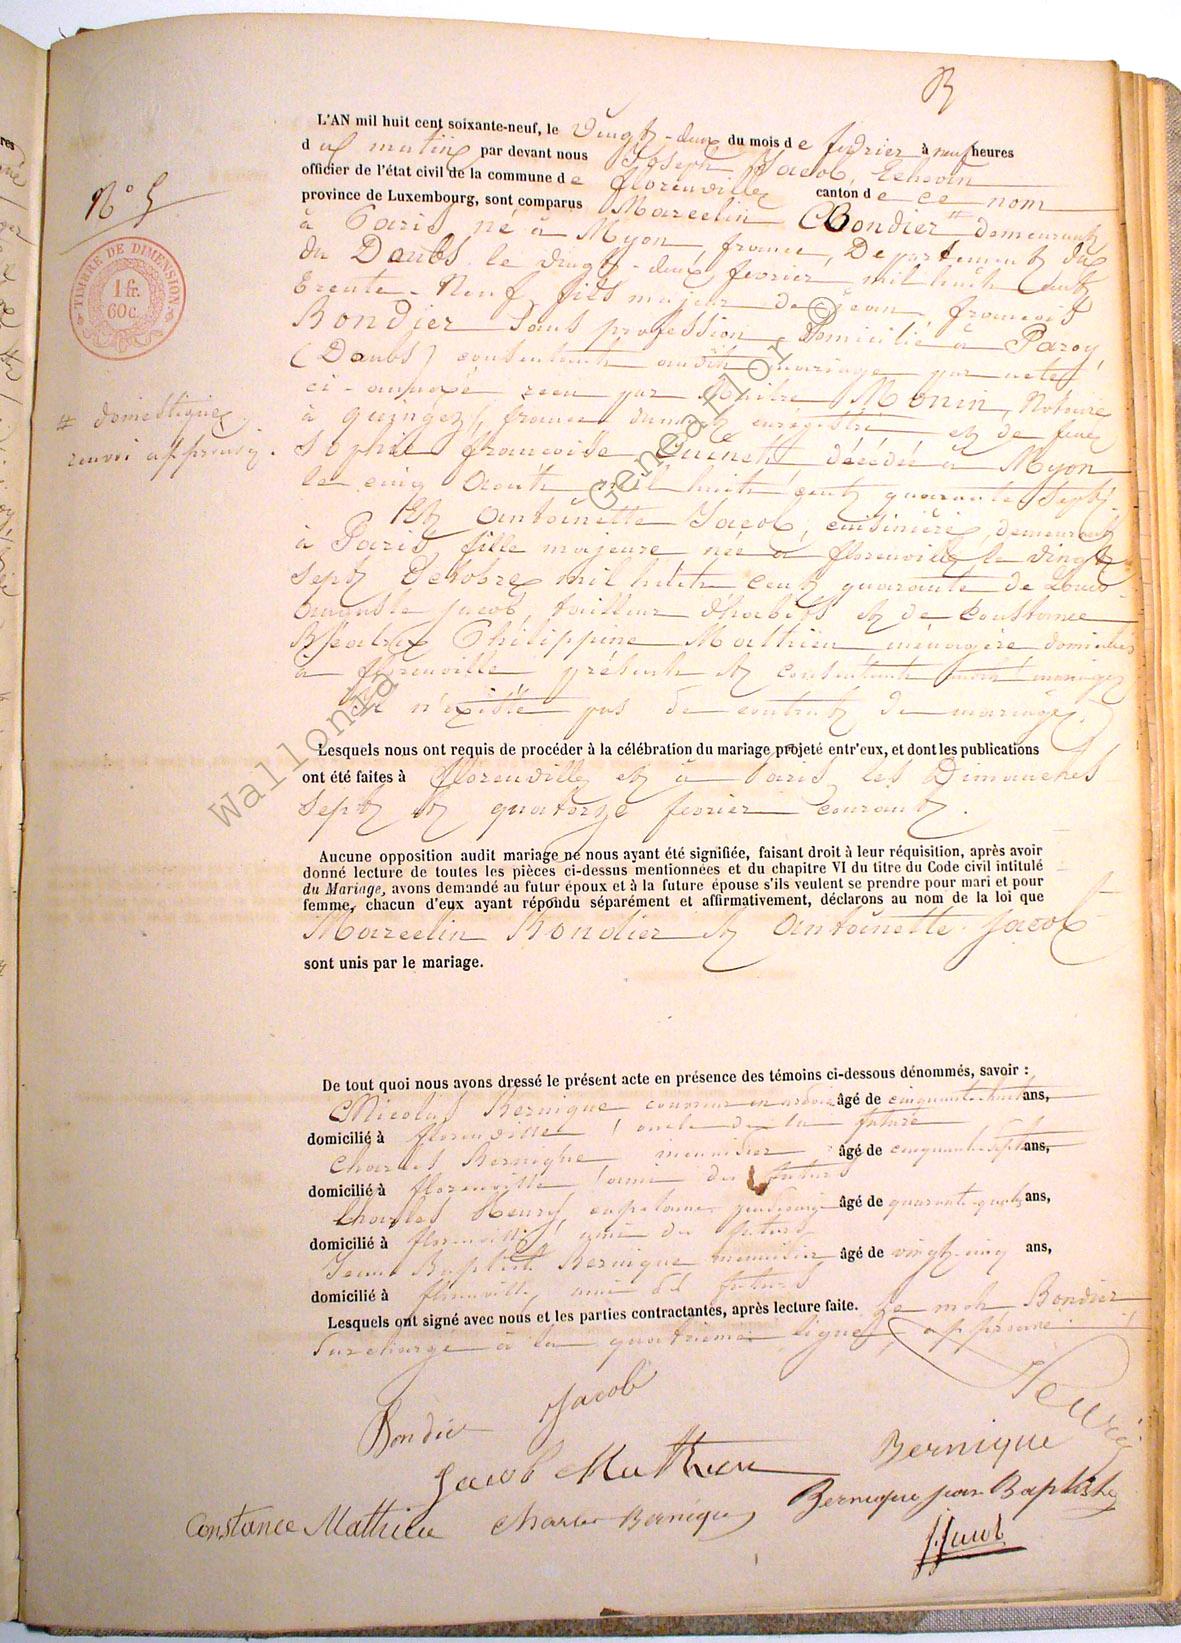 B
N° 5
TIMBRE DE DIMENSION
1 fr.
60 c.
# domestique
renvoi approuvé.
L'AN mil huit cent soixante-neuf, le vingt-deux du mois de février à neuf heures
du matin par devant nous Joseph Jacob, Echevin
officier de l'état civil de la commune de florenville canton de ce nom
province de Luxembourg, sont comparus Marcelin Bondier # demeurant
à Paris né à Myon, france, Departement du
du Doubs le vingt-deux fevrier mil huit cent
trente-Neuf fils majeur de jean, françois
Bondier sans profession domicilié à Paroy,
(Doubs) consentant audit mariage par acte
ci-annexé recu par Maitre Monin, Notaire
à quingey, france dument enrégistré et de feue
Sophie françoise décédée à Myon
le cinq Août mil huit cent quarante Sept.
Et Antoinette Jacob, cuisinière, demeurant
à Paris, fille majeure née à florenville le vingt
sept Octobre mil huit cent quarante de Louis
Auguste Jacob, tailleur d'habits et de Constance
Philippine Mathieu, ménagère domiciliés
à florenville présents et consentants
Il n'existe pas de contrat de mariage.
Lesquels nous ont requis de procéder à la célébration du mariage projeté entr'eux, et dont les publications
ont été faites à florenville et à Paris les Dimanches
sept et quatorze fevrier courant.
Aucune opposition audit mariage ne nous ayant été signifiée, faisant droit à leur réquisition, après avoir
donné lecture de toutes les pièces ci-dessus mentionnées et du chapitre VI du titre du Code civil intitulé
du Mariage, avons demandé au futur époux et à la future épouse s'ils veulent se prendre pour mari et pour
femme, chacun d'eux ayant répondu séparément et affirmativement, déclarons au nom de la loi que
Marcelin Bondier et Antoinette Jacob
sont unis par le mariage.
De tout quoi nous avons dressé le présent acte en présence des témoins ci-dessous dénommés, savoir :
Nicolas Bernique couvreur en ardoise âgé de cinquante-huit ans,
domicilié à florenville, oncle de la future
Charles Bernique, menuisier âgé de cinquante-sept ans,
domicilié à florenville, ami du futur
Charles Henry, âgé de quarante-quatre ans,
domicilié à florenville, ami du futur
Jean Baptiste Bernique menuisier âgé de vingt-cinq ans,
domicilié à florenville, ami du futur
Lesquels ont signé avec nous et les parties contractantes, après lecture faite. Le mot Bondier
surchargé à la quatrième ligne, approuvé.
Henry
Bondier Jacob
Jacob Mathieu Bernique
Constance Mathieu Charles Bernique Bernique jean Baptiste
J. Jacob
Wallonia GeneaFlor ©